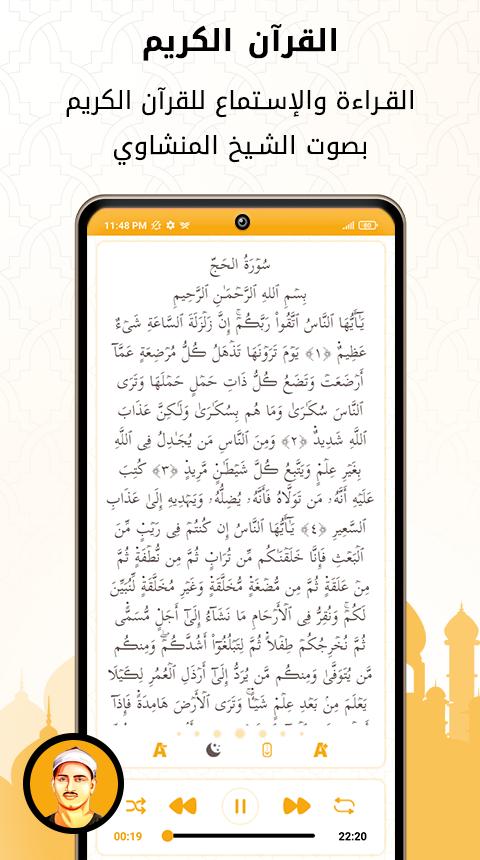 القرآن الكريم
القراءة والإستماع للقرآن الكريم
بصوت الشيخ المنشاوي
11:48 PM
80
سُورَةُ الحَجِّ
بِسۡمِ ٱللهِ ٱلرَّحۡمَـٰنِ ٱلرَّحِيمِ
يَـٰٓأَيُّهَا ٱلنَّاسُ ٱتَّقُواْ رَبَّكُمۡۚ إِنَّ زَلۡزَلَةَ ٱلسَّاعَةِ شَيۡءٌ
عَظِيمٌ ﴿١﴾ يَوۡمَ تَرَوۡنَهَا تَذۡهَلُ كُلُّ مُرۡضِعَةٍ عَمَّآ
أَرۡضَعَتۡ وَتَضَعُ كُلُّ ذَاتِ حَمۡلٍ حَمۡلَهَا وَتَرَى
ٱلنَّاسَ سُكَـٰرَىٰ وَمَا هُم بِسُكَـٰرَىٰ وَلَـٰكِنَّ عَذَابَ
ٱللَّهِ شَدِيدٌ ﴿٢﴾ وَمِنَ ٱلنَّاسِ مَن يُجَـٰدِلُ فِى ٱللَّهِ
بِغَيۡرِ عِلۡمٍ وَيَتَّبِعُ كُلَّ شَيۡطَـٰنٍ مَّرِيدٍ ﴿٣﴾ كُتِبَ
عَلَيۡهِ أَنَّهُۥ مَن تَوَلَّاهُ فَأَنَّهُۥ يُضِلُّهُۥ وَيَهۡدِيهِ إِلَىٰ عَذَابِ
ٱلسَّعِيرِ ﴿٤﴾ يَـٰٓأَيُّهَا ٱلنَّاسُ إِن كُنتُمۡ فِى رَيۡبٍ مِّنَ
ٱلۡبَعۡثِ فَإِنَّا خَلَقۡنَـٰكُم مِّن تُرَابٍ ثُمَّ مِن نُّطۡفَةٍ ثُمَّ
مِنۡ عَلَقَةٍ ثُمَّ مِن مُّضۡغَةٍ مُّخَلَّقَةٍ وَغَيۡرِ مُخَلَّقَةٍ لِّنُبَيِّنَ
لَكُمۡۚ وَنُقِرُّ فِى ٱلۡأَرۡحَامِ مَا نَشَآءُ إِلَىٰٓ أَجَلٍ مُّسَمًّى
ثُمَّ نُخۡرِجُكُمۡ طِفۡلاً ثُمَّ لِتَبۡلُغُوٓاْ أَشُدَّكُمۡۖ وَمِنكُم
مَّن يُتَوَفَّىٰ وَمِنكُم مَّن يُرَدُّ إِلَىٰٓ أَرۡذَلِ ٱلۡعُمُرِ لِكَيۡلَا
يَعۡلَمَ مِنۢ بَعۡدِ عِلۡمٍ شَيۡـًٔاۚ وَتَرَى ٱلۡأَرۡضَ هَامِدَةً فَإِذَآ
A- A+
00:19 22:20